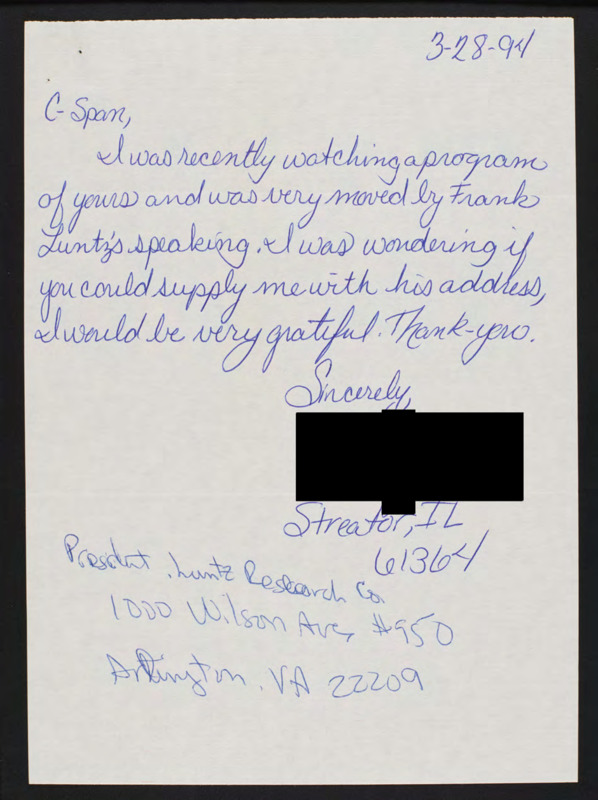 3-28-94
C-Span,
I was recently watching a program
of yours and was very moved by Frank
Luntz's speaking. I was wondering if
you could supply me with his address,
I would be very grateful. Thank-you.
Sincerely,
Streator, IL
61364
President, Luntz Research Co.
1000 Wilson Ave, #950
Arlington, VA 22209